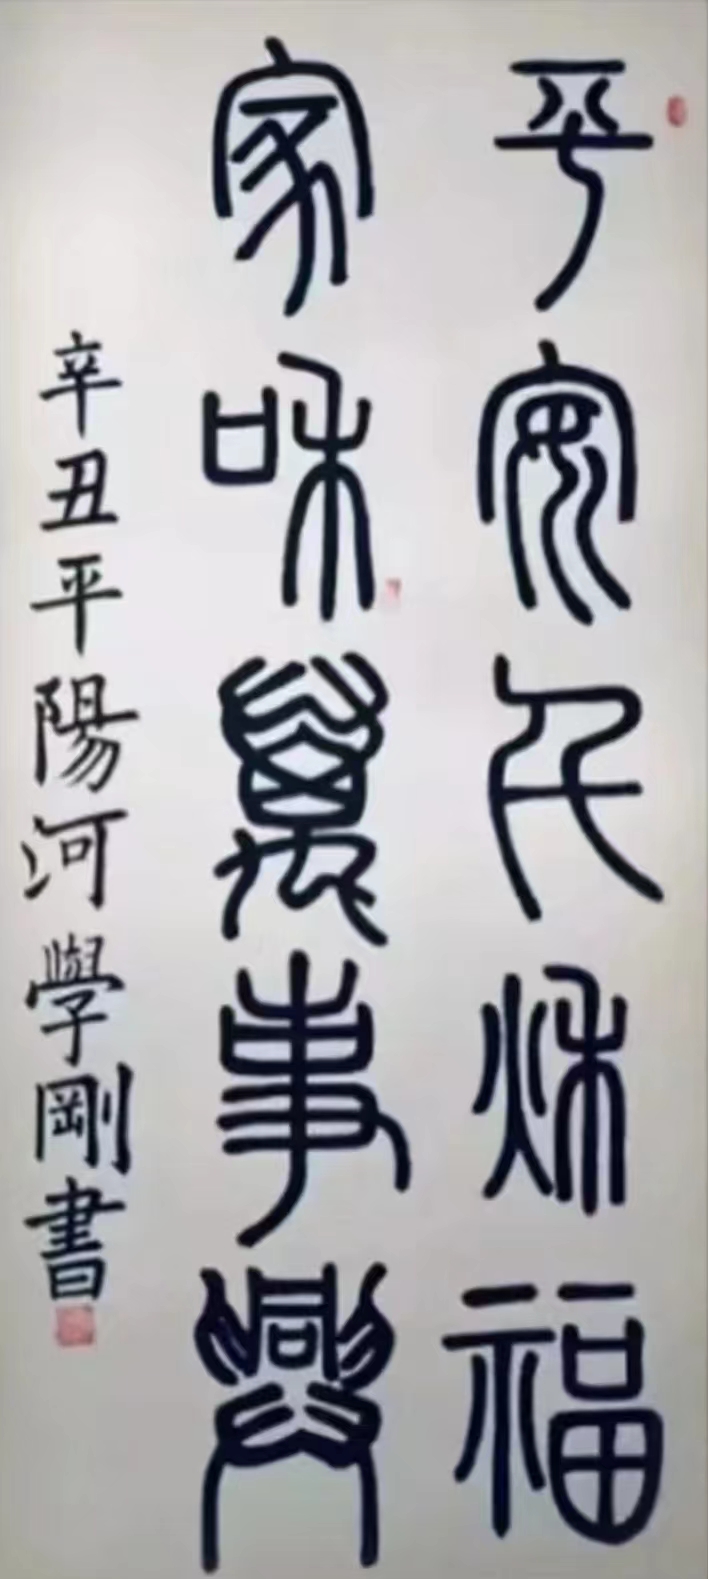 平安民秋福
家和萬事興
辛丑平陽河學剛書